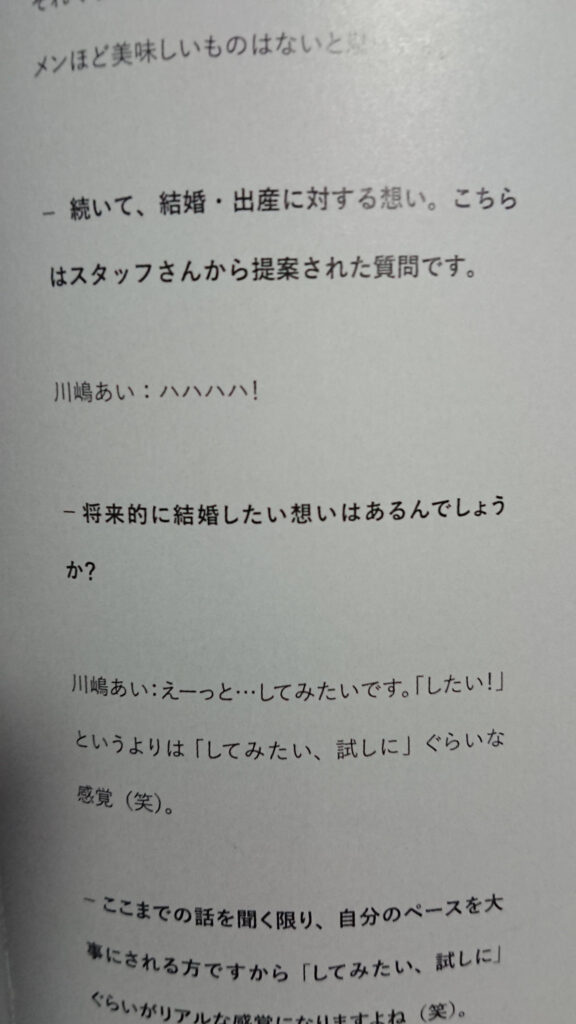 メンほど美味しいものはないと
− 続いて、結婚・出産に対する想い。こちら
はスタッフさんから提案された質問です。
川嶋あい：ハハハハ！
− 将来的に結婚したい想いはあるんでしょう
か？
川嶋あい：えーっと…してみたいです。「したい！」
というよりは「してみたい、試しに」ぐらいな
感覚（笑）。
− ここまでの話を聞く限り、自分のペースを大
事にされる方ですから「してみたい、試しに」
ぐらいがリアルな感覚になりますよね（笑）。